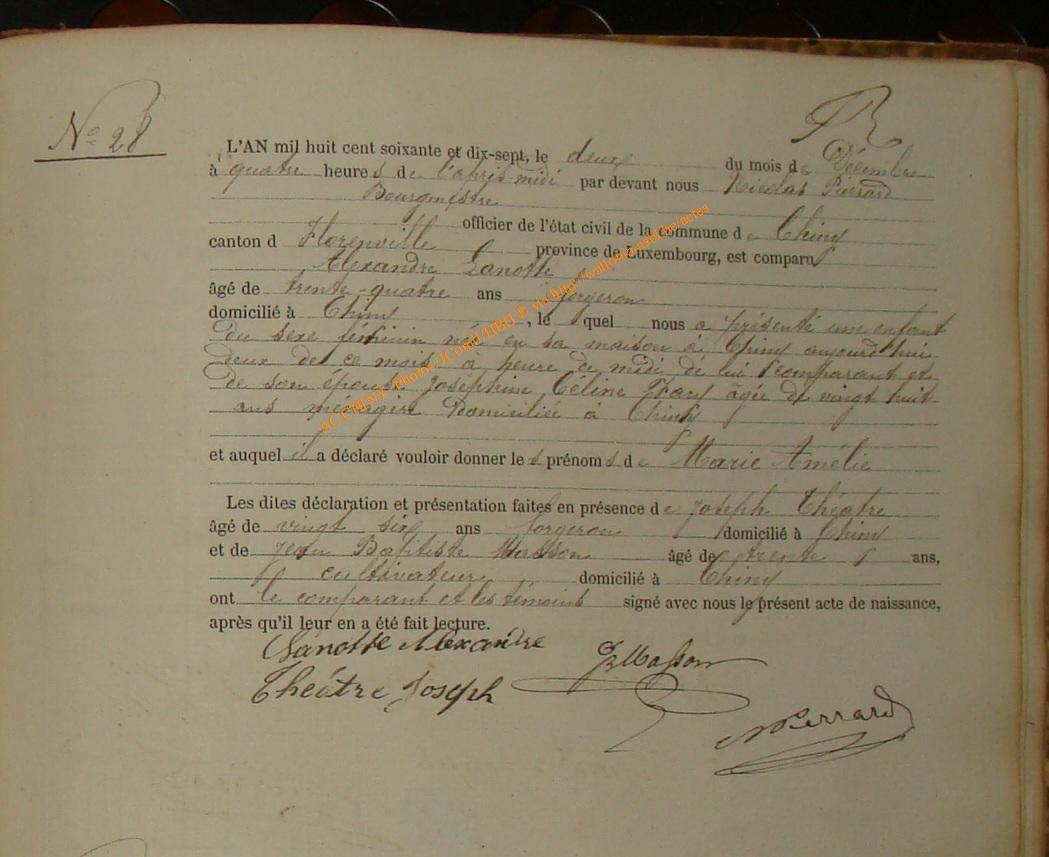 No 28
L'AN mil huit cent soixante et dix-sept, le deux du mois de Décembre
à quatre heures de l'après midi par devant nous Nicolas Pierrard
Bourgmestre
officier de l'état civil de la commune de Chiny
canton d Florenville province de Luxembourg, est comparu
Alexandre Lanotte
âgé de trente-quatre ans forgeron
domicilié à Chiny, le quel nous a présenté une enfant
du sexe féminin née en sa maison à Chiny aujourd'hui
deux de ce mois à heure de midi de lui comparant et
de son épouse Joséphine Céline âgée de vingt huit
ans ménagère domiciliée à Chiny
et auquel il a déclaré vouloir donner les prénoms de Marie Amélie
Les dites déclaration et présentation faites en présence de Joseph Théatre
âgé de vingt six ans forgeron domicilié à Chiny
et de Jean Baptiste Masson âgé de trente ans,
cultivateur domicilié à Chiny
ont le comparant et les témoins signé avec nous le présent acte de naissance,
après qu'il leur en a été fait lecture.
Lanotte Alexandre JBMasson
Théâtre Joseph
NPierrard